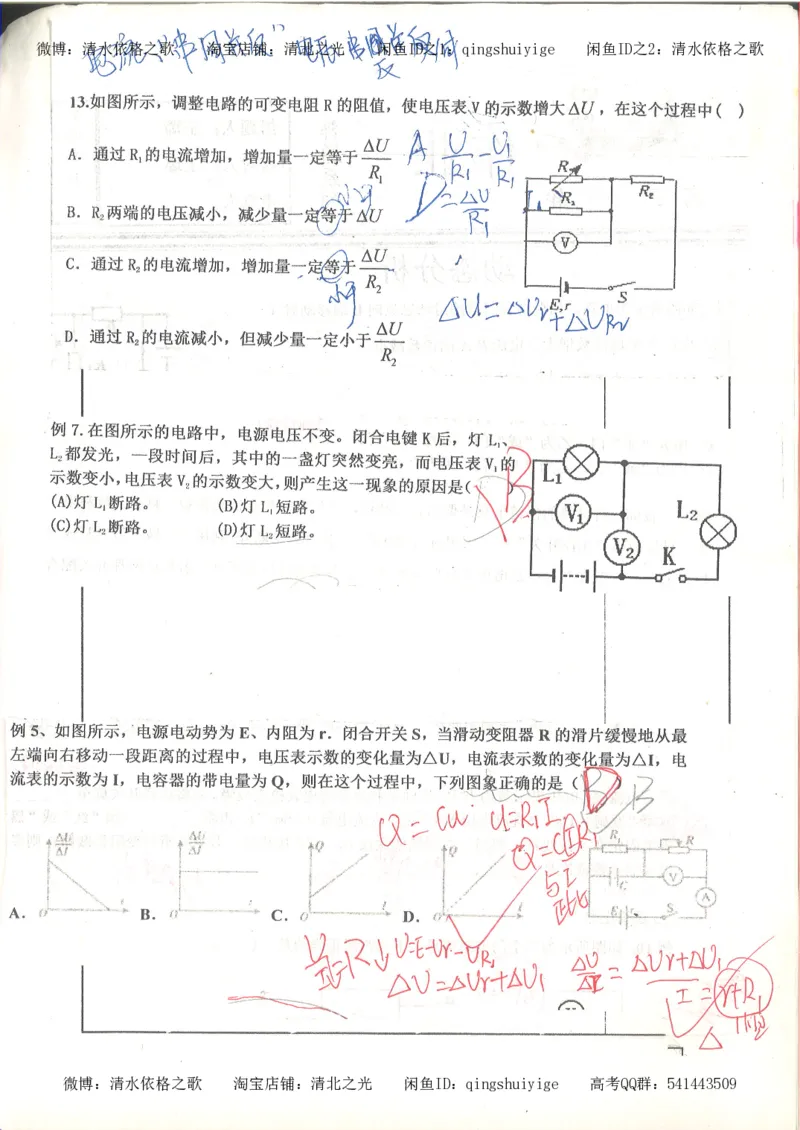 微博：清水依格之歌 淘宝店铺：清北之光 闲鱼ID之1：qingshuiyige 闲鱼ID之2：清水依格之歌
13.如图所示，调整电路的可变电阻 R 的阻值，使电压表 V 的示数增大 ΔU，在这个过程中( )
A．通过 R₁的电流增加，增加量一定等于 ΔU/R₁
A U/R₁ - U₁/R₁
= ΔU/R₁
B．R₂两端的电压减小，减少量一定等于 ΔU
小于
D
C．通过 R₂的电流增加，增加量一定等于 ΔU/R₂
小于
D．通过 R₂的电流减小，但减少量一定小于 ΔU/R₂
R₂
V
E,r
S
ΔU=ΔUr+ΔUR₂
例 7. 在图所示的电路中，电源电压不变。闭合电键 K 后，灯 L₁、
L₂都发光，一段时间后，其中的一盏灯突然变亮，而电压表 V₁的
示数变小，电压表 V₂的示数变大，则产生这一现象的原因是( )
(A)灯 L₁断路。 (B)灯 L₁短路。
(C)灯 L₂断路。 (D)灯 L₂短路。
B
L₁
V₁
L₂
V₂
K
例 5、如图所示，电源电动势为 E、内阻为 r．闭合开关 S，当滑动变阻器 R 的滑片缓慢地从最
左端向右移动一段距离的过程中，电压表示数的变化量为△U，电流表示数的变化量为△I，电
流表的示数为 I，电容器的带电量为 Q，则在这个过程中，下列图象正确的是（ ）
D B
Q=CU U=R₁I
Q=CIR₁
与I
正比
A． ΔU/ΔI O I
B． ΔU/ΔI O I
C． Q O I
D． Q O I
R₁ R
C V
A
E r S
U/I=R↓ U=E-Ur-UR₁
ΔU=ΔUr+ΔU₁
ΔU/ΔI = ΔUr+ΔU₁/I = r+R₁
微博：清水依格之歌 淘宝店铺：清北之光 闲鱼ID：qingshuiyige 高考QQ群：541443509